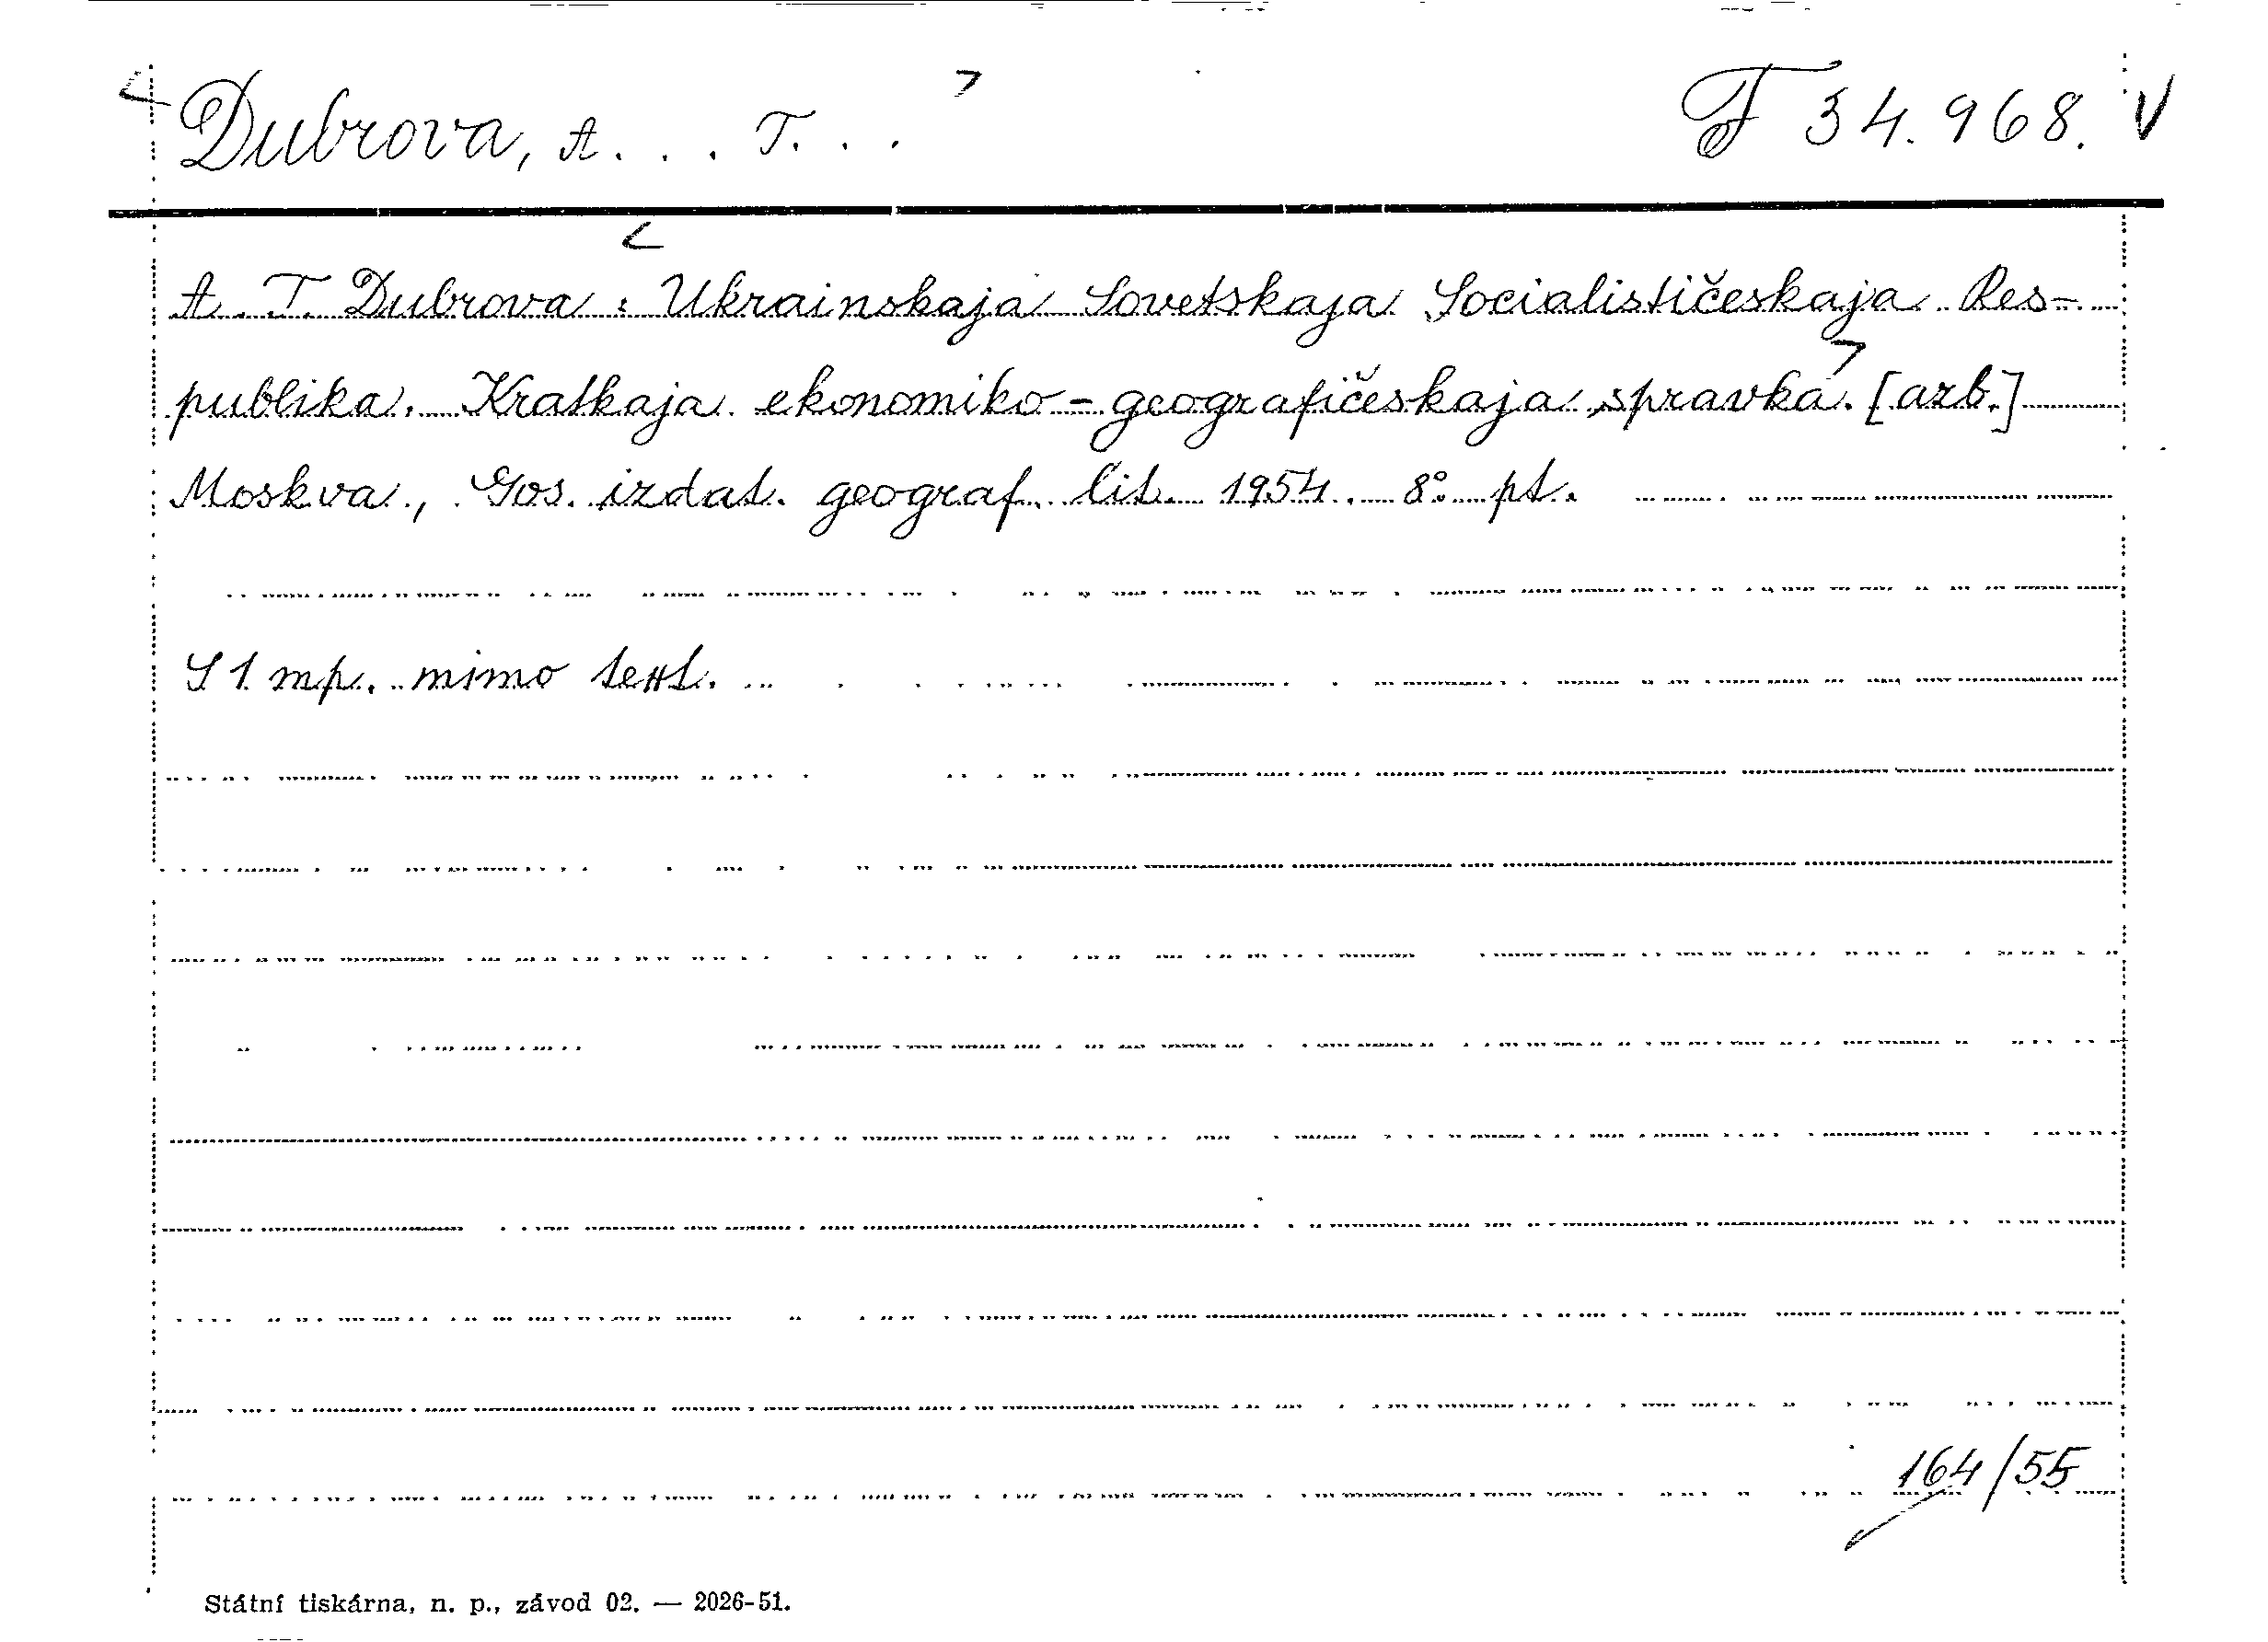 Dubrova, A... T... F 34.968. V
A. T. Dubrova: Ukrainskaja Sovetskaja Socialističeskaja Res-
publika. Kratkaja ekonomiko-geografičeskaja spravka. [azb.]
Moskva, Gos. izdat. geograf. lit. 1954. 8° pt.
S 1 mp. mimo text.
164/55
Státní tiskárna, n. p., závod 02. — 2026-51.